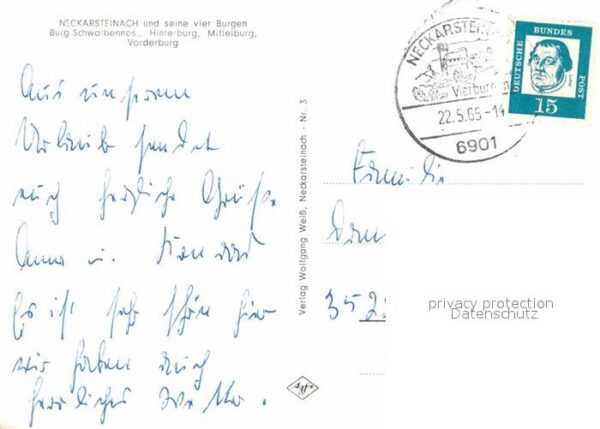 NECKARSTEINACH und seine vier Burgen
Burg Schwalbennes., Hinterburg, Mittelburg,
Vorderburg
Aus unserem
Urlaub sendet
euch herzliche Grüße
Anna u.
Es ist sehr schön hier
wir haben auch
herrliches Wetter.
Verlag Wolfgang Weiß, Neckarsteinach - Nr. 3
NECKARSTEIN
Vierburg
22.5.65-14
6901
DEUTSCHE BUNDES POST
15
Familie
352
privacy protection
Datenschutz